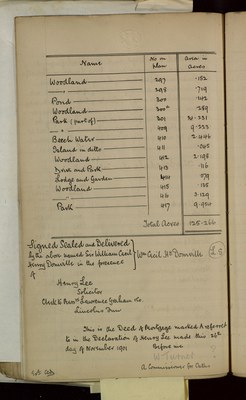 Name No on plan Area in Acres
Woodland 297 .152
" 298 .709
Pond 300 .142
Woodland 300a .289
Park (part of) 301
" 409 9.333
Beech Water 410 2.446
Island in ditto 411 .065
Woodland 412 2.198
Drive and Park 413 .116
Lodge and Garden 414 .179
Woodland 415 .125
" 416 3.129
Park 417 9.950
Total Acres 125.266
Signed Sealed and Delivered
by the above named Sir William Cecil
Henry Domville in the presence
of
Wm Cecil Hy Domville
L S
Henry Lee
Solicitor
Clerk to Lawrence Graham &Co.
Lincolns Inn
This is the Deed of Mortgage marked A referred
to in the Declaration of Henry Lee made this 29th
day of November 1901 Before me
W Turner
A Commissioner for Oaths